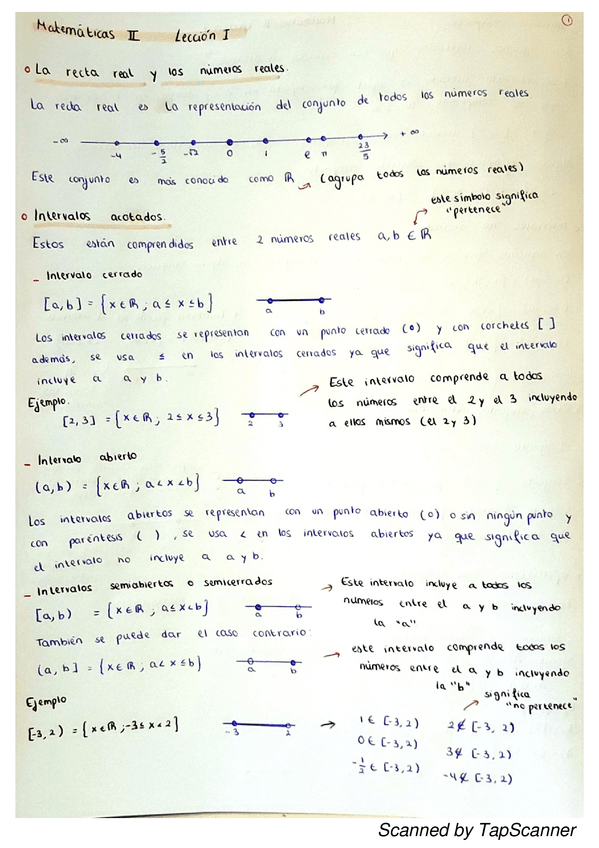 ①
Matemáticas II Lección I
La recta real y los números reales.
La recta real es la representación del conjunto de todos los números reales
-∞ +∞
-4 -5/2 -√2 0 1 e π 23/5
Este conjunto es más conocido como ℝ (agrupa todos los números reales)
este símbolo significa
"pertenece"
Intervalos acotados.
Estos están comprendidos entre 2 números reales a, b ∈ ℝ
- Intervalo cerrado
[a, b] = {x ∈ ℝ ; a ≤ x ≤ b} a b
Los intervalos cerrados se representan con un punto cerrado (•) y con corchetes [ ]
además, se usa ≤ en los intervalos cerrados ya que significa que el intervalo
incluye a a y b.
Este intervalo comprende a todos
Ejemplo.
los números entre el 2 y el 3 incluyendo
[2, 3] = {x ∈ ℝ ; 2 ≤ x ≤ 3} 2 3
a ellos mismos (el 2 y 3)
- Intervalo abierto
(a, b) = {x ∈ ℝ ; a < x < b} a b
Los intervalos abiertos se representan con un punto abierto (○) o sin ningún punto y
con paréntesis ( ), se usa < en los intervalos abiertos ya que significa que
el intervalo no incluye a a y b.
- Intervalos semiabiertos o semicerrados
Este intervalo incluye a todos los
números entre el a y b incluyendo
la "a"
[a, b) = {x ∈ ℝ ; a ≤ x < b} a b
También se puede dar el caso contrario:
este intervalo comprende todos los
números entre el a y b incluyendo
la "b"
(a, b] = {x ∈ ℝ ; a < x ≤ b} a b
significa
"no pertenece"
Ejemplo
[-3, 2) = {x ∈ ℝ ; -3 ≤ x < 2} -3 2
1 ∈ [-3, 2) 2 ∉ [-3, 2)
0 ∈ [-3, 2) 3 ∉ [-3, 2)
-1/2 ∈ [-3, 2) -4 ∉ [-3, 2)
Scanned by TapScanner